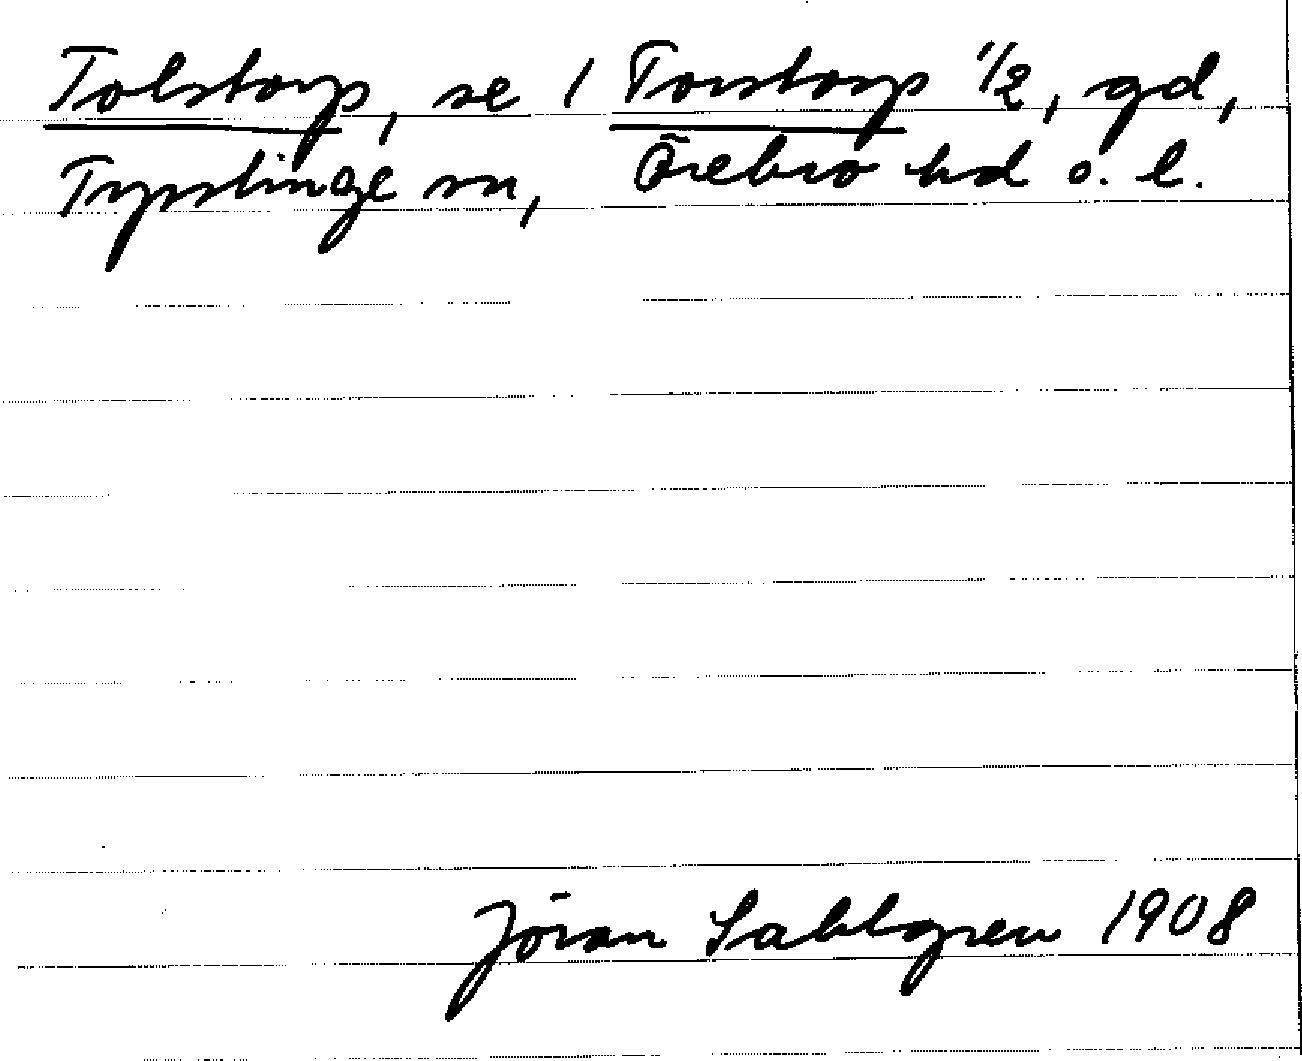 Tolstorp, se 1 Torstorp 1/2, gd,
Tysslinge sn, Örebro hd o. l.
Jöran Sahlgren 1908